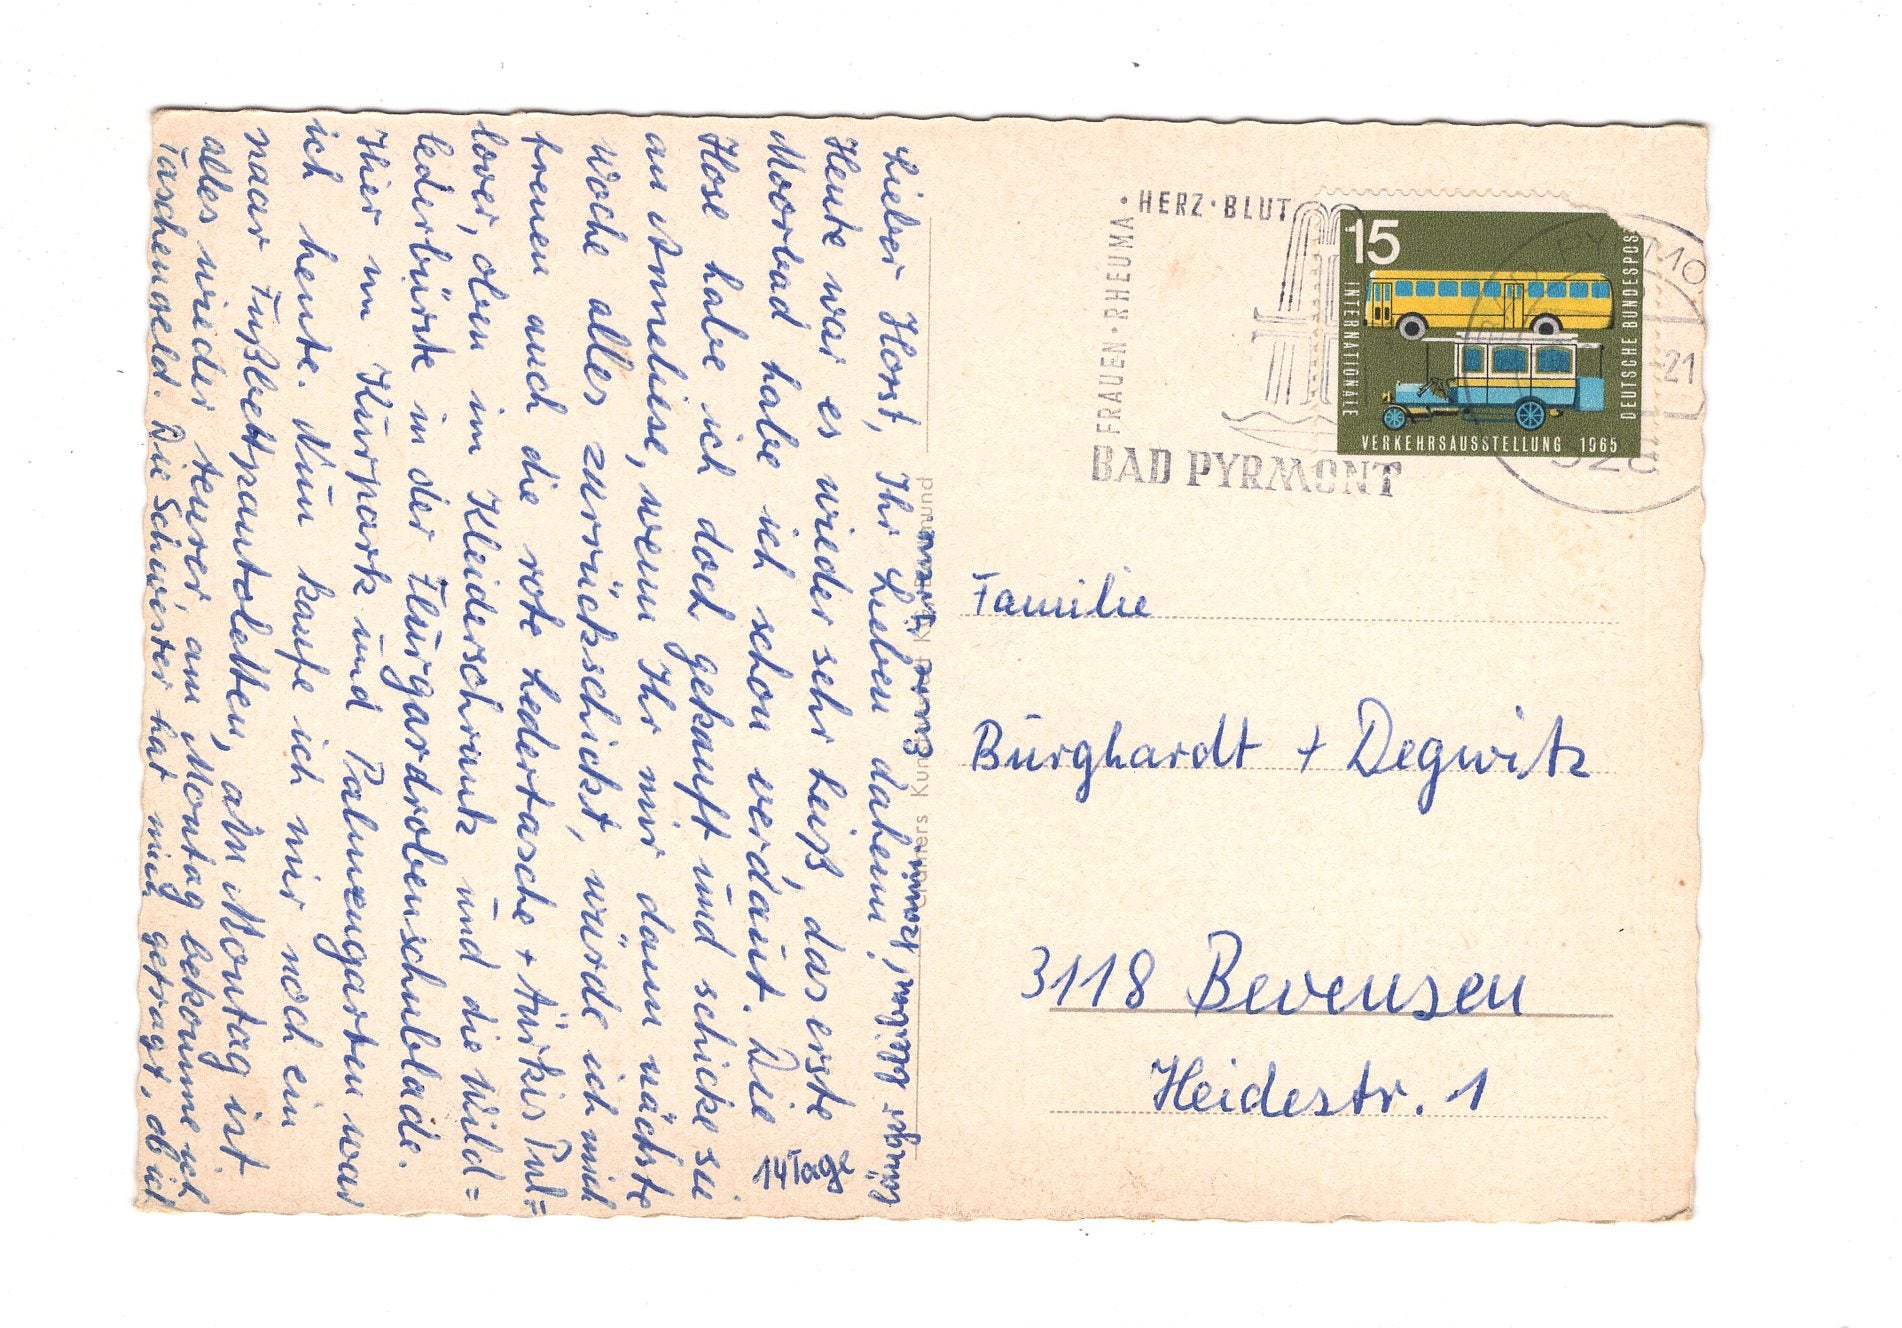 Lieber Horst, Ihr Lieben daheim!
Heute war es wieder sehr heiß, das erste
Moorbad habe ich schon verdaut. Die
Hose habe ich doch gekauft und schicke sie
an Anneliese, wenn Ihr mir dann nächste
Woche alles zurückschickt, würde ich mich
freuen auch die rote Ledertasche + türkis Pul=
lover, oben im Kleiderschrank und die Wild=
lederbürste in der Flurgardrobenschublade.
Hier im Kurpark und Palmengarten war
ich heute. Nun kaufe ich mir noch ein
paar Fußbettpantoletten, am Montag ist
alles wieder teurer, am Montag bekomme ich
Taschengeld. Die Schwester hat mich gefragt, ob ich
14 Tage
Cramers Kunst
mund
HERZ · BLUT
FRAUEN · RHEUMA ·
BAD PYRMONT
21
15
INTERNATIONALE
VERKEHRSAUSSTELLUNG 1965
DEUTSCHE BUNDESPOS
Familie
Burghardt + Degwitz
3118 Bevensen
Heidestr. 1